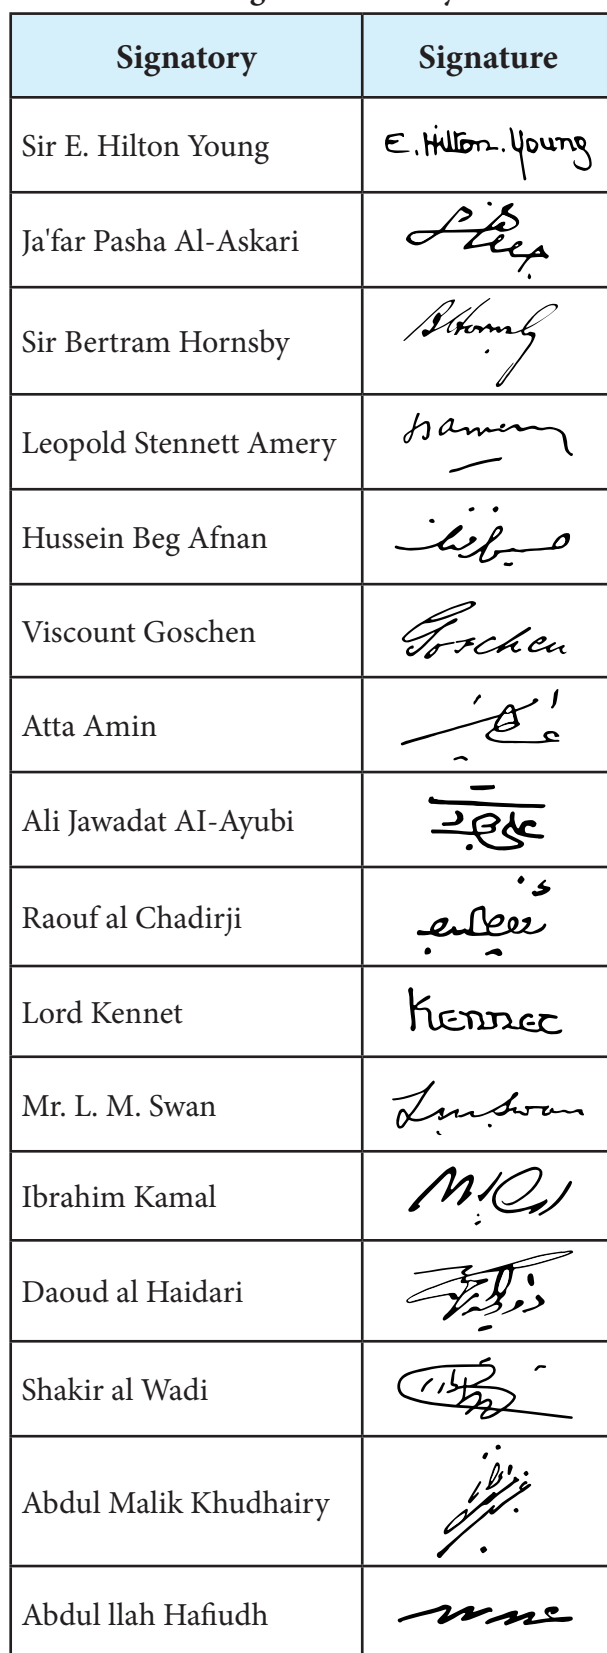 Signatory Signature
Sir E. Hilton Young E. Hilton. Young
Ja'far Pasha Al-Askari
Sir Bertram Hornsby BHornsby
Leopold Stennett Amery LSAmery
Hussein Beg Afnan
Viscount Goschen Goschen
Atta Amin
Ali Jawadat AI-Ayubi
Raouf al Chadirji
Lord Kennet Kennet
Mr. L. M. Swan LmSwan
Ibrahim Kamal
Daoud al Haidari
Shakir al Wadi
Abdul Malik Khudhairy
Abdul llah Hafiudh